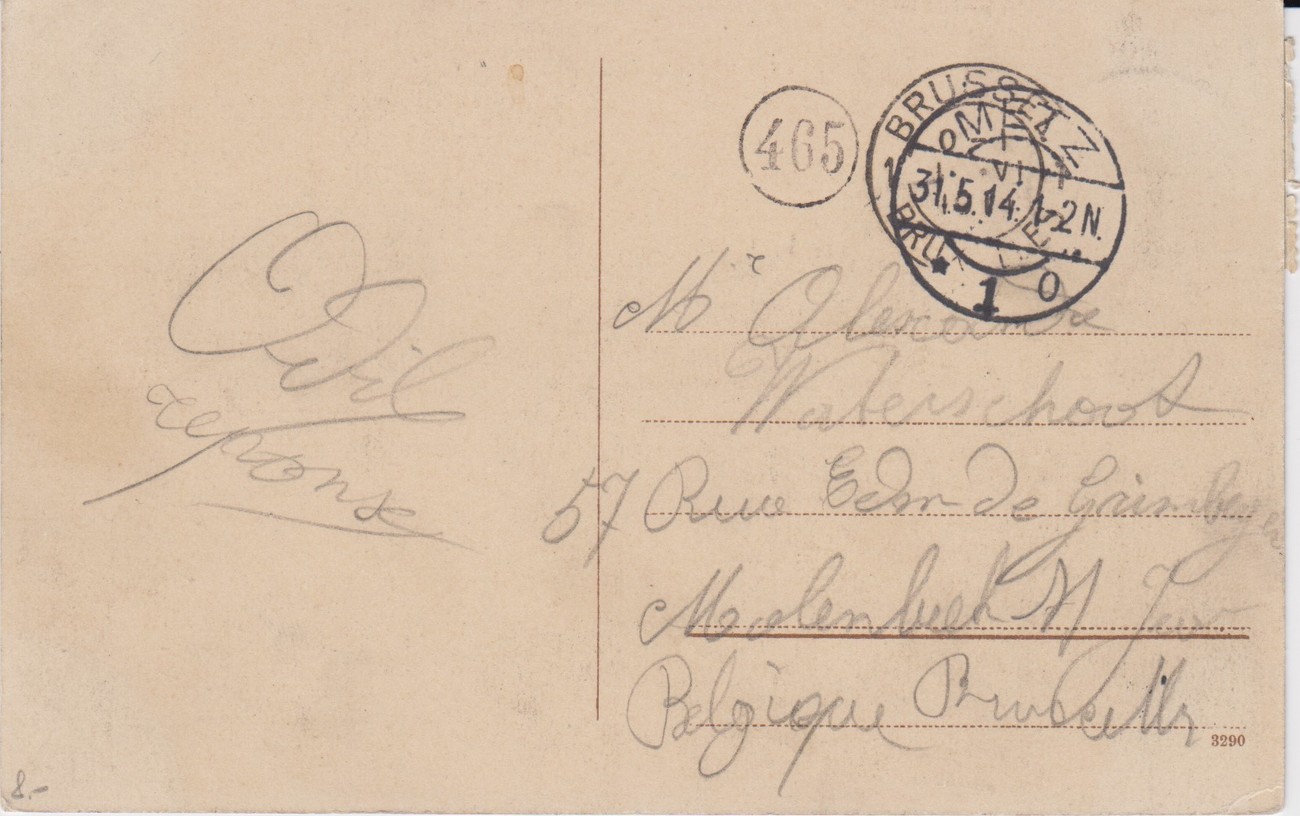 465
BRUSSEL
BRU
METZ
31.5.14. 1-2N.
* 1 o
Odil
reponse
Mr Alexandre
Waterschoot
57 Rue Edm de Grimberge
Molenbeek St Jean
Belgique Bruxelles
3290
8.-